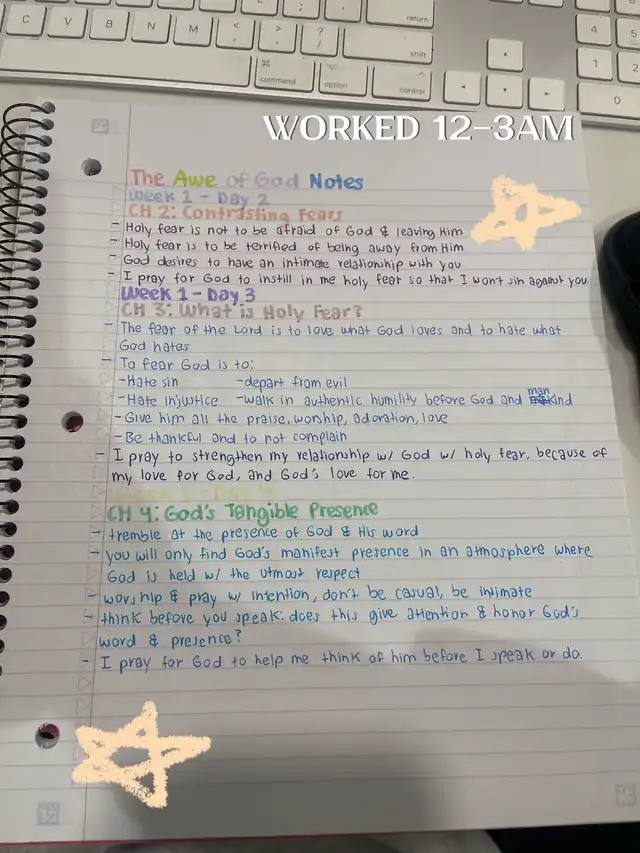 return
C V B N M < , > . ? / shift
⌘ command ⌥ option ^ control
4 5
1 2
0
WORKED 12-3AM
The Awe of God Notes
Week 1 - Day 2
CH 2: Contrasting Fears
- Holy fear is not to be afraid of God & leaving Him
- Holy fear is to be terrified of being away from Him
- God desires to have an intimate relationship with you
- I pray for God to instill in me holy fear so that I won't sin against you.
Week 1 - Day 3
CH 3: What is Holy Fear?
- The fear of the Lord is to love what God loves and to hate what
God hates
- To fear God is to:
-Hate sin -depart from evil
-Hate injustice -walk in authentic humility before God and mankind
-Give him all the praise, worship, adoration, love
-Be thankful and to not complain
- I pray to strengthen my relationship w/ God w/ holy fear, because of
my love for God, and God's love for me.
Week 1 - Day 4
CH 4: God's Tangible Presence
- tremble at the presence of God & His word
- you will only find God's manifest presence in an atmosphere where
God is held w/ the utmost respect
- worship & pray w/ intention, don't be casual, be intimate
- think before you speak: does this give attention & honor God's
word & presence?
- I pray for God to help me think of him before I speak or do.